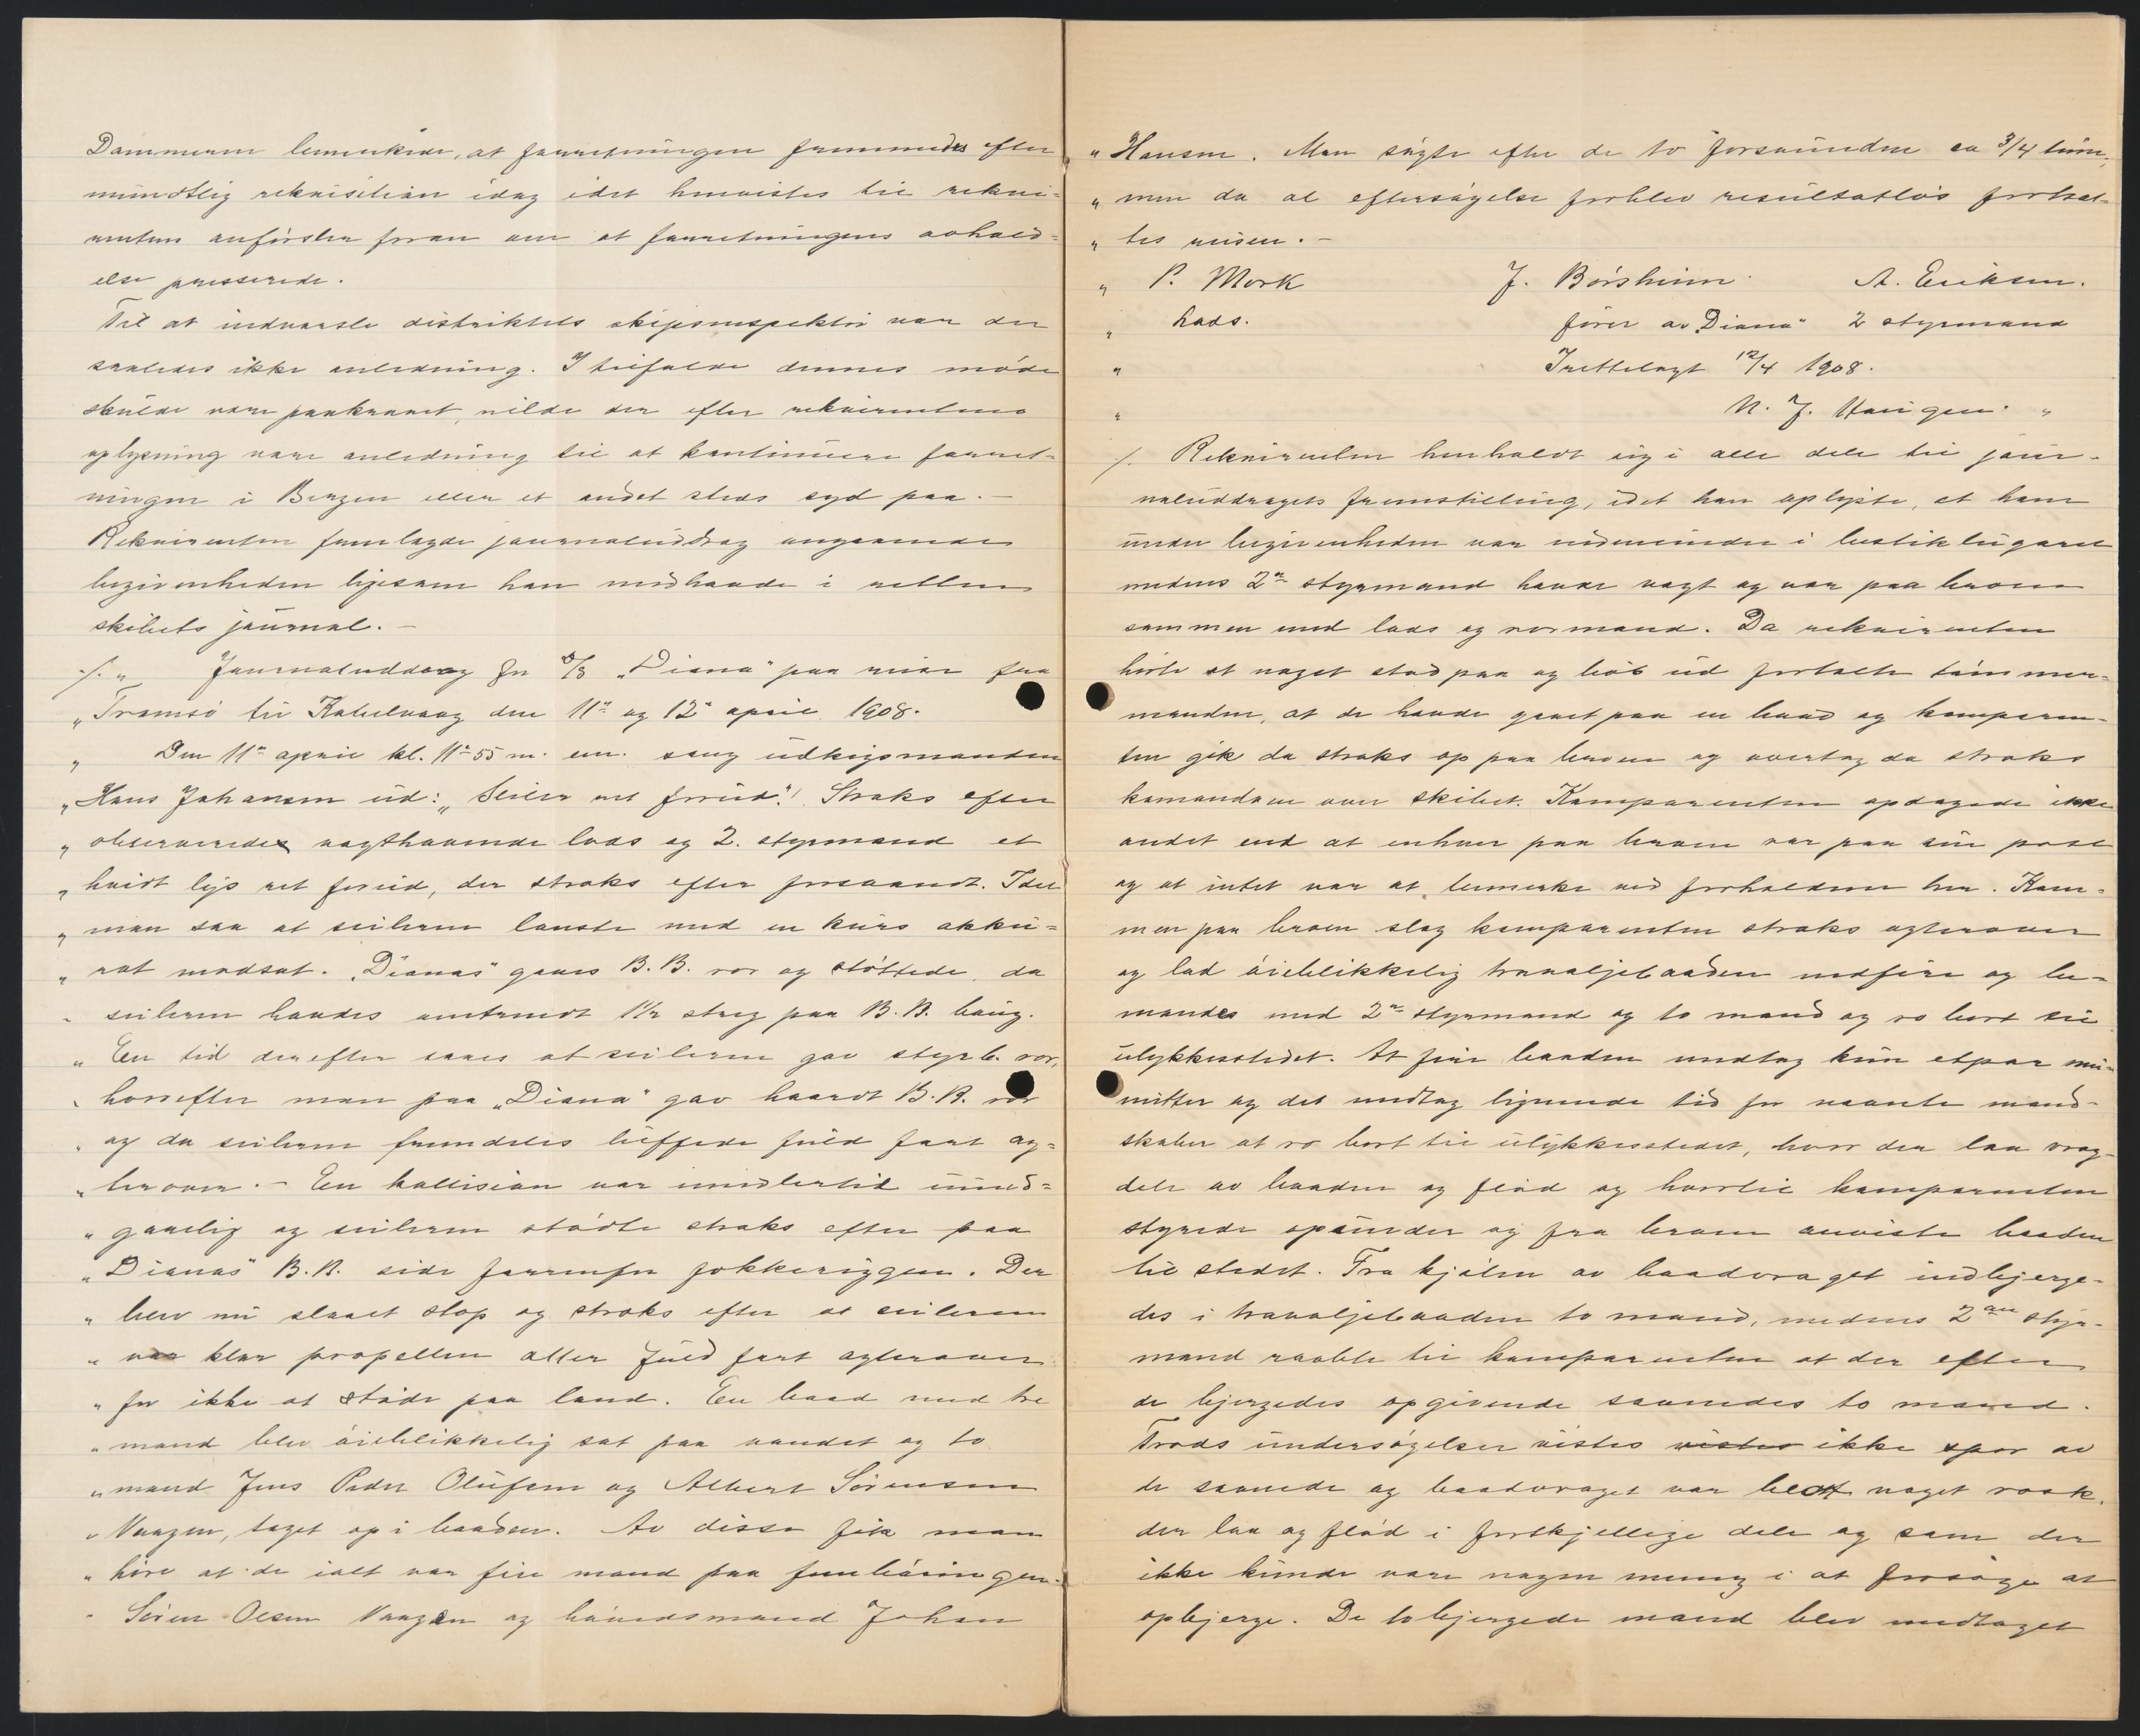 Dommeren bemerkede, at forretningen fremmedes efter
mundtlig rekvisition idag idet henvistes til rekvi-
rentens anförsler foran om at forretningens avhold-
else passerede.
Til at indvarsle distriktets skipsinspektör var der
saaledes ikke anledning. I tilfælde dennes möde
skulde være paakrævet, vilde der efter rekvirentens
oplysning være anledning til at kontinuere forret-
ningen i Bergen eller et andet steds syd paa. -
Rekvirenten fremlagde journaluddrag angaaende
begivenheden ligesom han medhavde i retten
skibets journal. -
⁒ " Journaluddrag for d/s "Diana" paa reise fra
" Tromsö til Kabelvaag den 11te og 12te april 1908.
" Den 11te april kl. 11 55 m. em. sang udkigsmanden
" Hans Johansen ud: "Seiler ret forud"! Straks efter
" observeredes vagthavende lods og 2. styrmand et
" hvidt lys ret forud, der straks efter forsvandt. Idet
" man saa at seileren lænste med en kurs akku-
" rat modsat. "Dianas" gaves B.B. ror og stöttede, da
" seileren havdes omtrendt 1½ streg paa B.B. baug.
" En tid derefter saaes at seileren gav styrb. ror,
" hvorefter man paa "Diana" gav haardt B.B. ror
" og da seileren fremdeles luffede fuld fart ag-
" terover. - En kollision var imidlertid uund-
" gaaelig og seileren stödte straks efter paa
" "Dianas" B.B. side forrenfor fokkeriggen. Der
" blev nu slaaet stop og straks efter at seileren
" var klar propellen atter fuld fart agterover
" for ikke at støde paa land. En baad med tre
" mand blev öieblikkelig sat paa vandet og to
" mand Jens Peder Olufsen og Albert Sörensen
" Vaagen, taget op i baaden. Av disse fik man
" höre at de ialt var fire mand paa fembörin gen.
" Sören Olsen Vaagen og baadsmand Johan
" Hansen. Man sögte efter de to forsvundne ca 3/4 time,
" men da al eftersögelse forblev resultatlös fortsat-
" tes reisen. -
" P. Mork J. Börsheim A. Eriksen.
" Lods. förer av "Diana" 2 styrmand
" Irettelagt 12/4 1908.
" N. J. Haugen. "
⁒ Rekvirenten henholdt sig i alle dele til jour-
naluddragets fremstilling, idet han oplyste, at han
under begivenheden var nedenunder i bestiklugaren
medens 2n styrmand havde vagt og var paa broen
sammen med lods og rormand. Da rekvirenten
hörte at noget stod paa og löb ud fortalte tömmer-
manden, at de havde gaaet paa en baad og komparen-
ten gik da straks op paa broen og overtog da straks
kommandoen over skibet. Komparenten opdagede ikke
andet end at enhver paa broen var paa sin post
og at intet var at bemerke ved forholdene her. Kom-
men paa broen slog komparenten straks agterover
og lod öieblikkelig travaljebaaden nedfire og be-
mandes med 2n styrmand og to mand og ro bort til
ulykkesstedet. At fire baaden medtog kun etpar mi-
nutter og det medtog lignende tid for nævnte mand-
skaber at ro bort til ulykkesstedet, hvor der laa vrag-
dele av baaden og flöd og hvortil komparenten
styrede opunder og fra broen anviste baaden
til stedet. Fra kjölen av baadvraget indbjerge-
des i travaljebaaden to mand, medens 2den styr-
mand raabte til komparenten at der efter
de bjergedes opgivende savnedes to mand.
Trods undersögelser vistes vistes ikke spor av
de savnede og baadvraget var blot noget vrak,
der laa og flöd i forskjellige dele og som der
ikke kunde være nogen mening i at forsöge at
opbjerge. De to bjergede mand blev medtaget